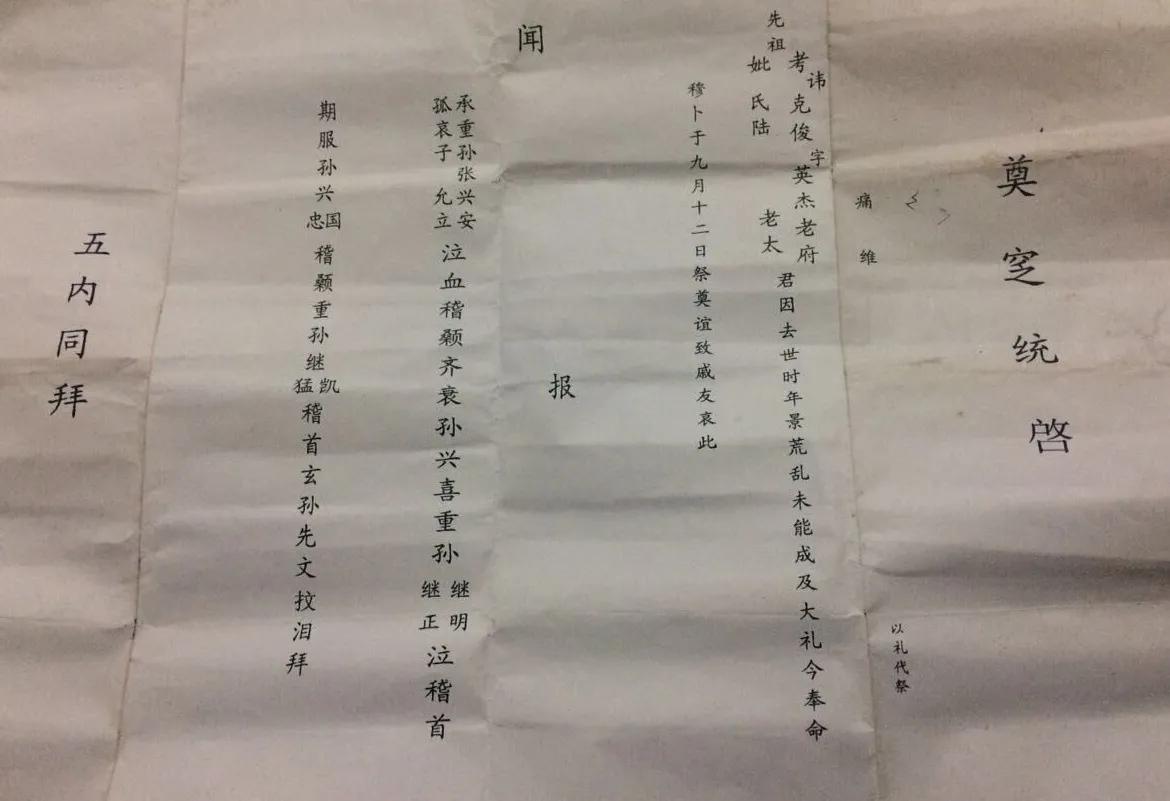 奠窆统啓
痛维
以礼代祭
先祖
考讳克俊字英杰老府
妣氏陆老太
君因去世时年景荒乱未能成及大礼今奉命
穆卜于九月十二日祭奠谊致戚友哀此
闻
报
承重孙张兴安
孤哀子允立
泣血稽颡齐衰孙兴喜重孙
继明
继正
泣稽首
期服孙兴
国忠
稽颡重孙继
凯猛
稽首玄孙先文抆泪拜
五内同拜